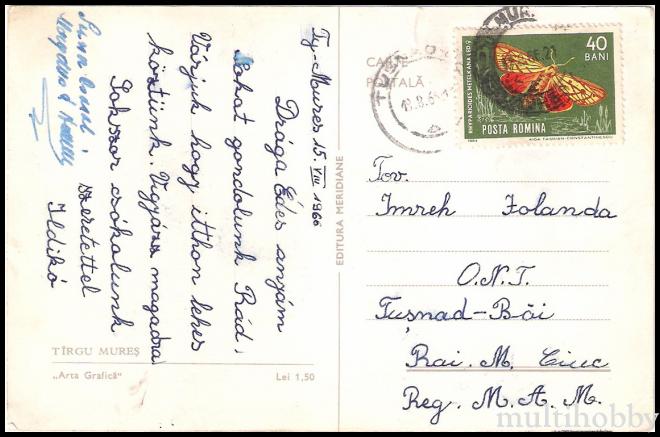 Tg-Mures 15. VIII 1966
Drága Édes anyám
Sokat gondolunk Rád,
Várjuk hogy itthon lehes
köztünk. Vigyázz magadra
Sokszor csókolunk
szeretettel
Ildikó
TÎRGU MUREȘ
„Arta Grafică“
Lei 1,50
EDITURA MERIDIANE
CARTE
POȘTALĂ
40
BANI
RHYPARIOIDES METELKANA LED. ♀
POSTA ROMINA
AIDA TASGIAN-CONSTANTINESCU
Tov.
Imreh Iolanda
O.N.T.
Tușnad-Băi
Rai. M. Ciuc
Reg. M. A. M.
multihobby